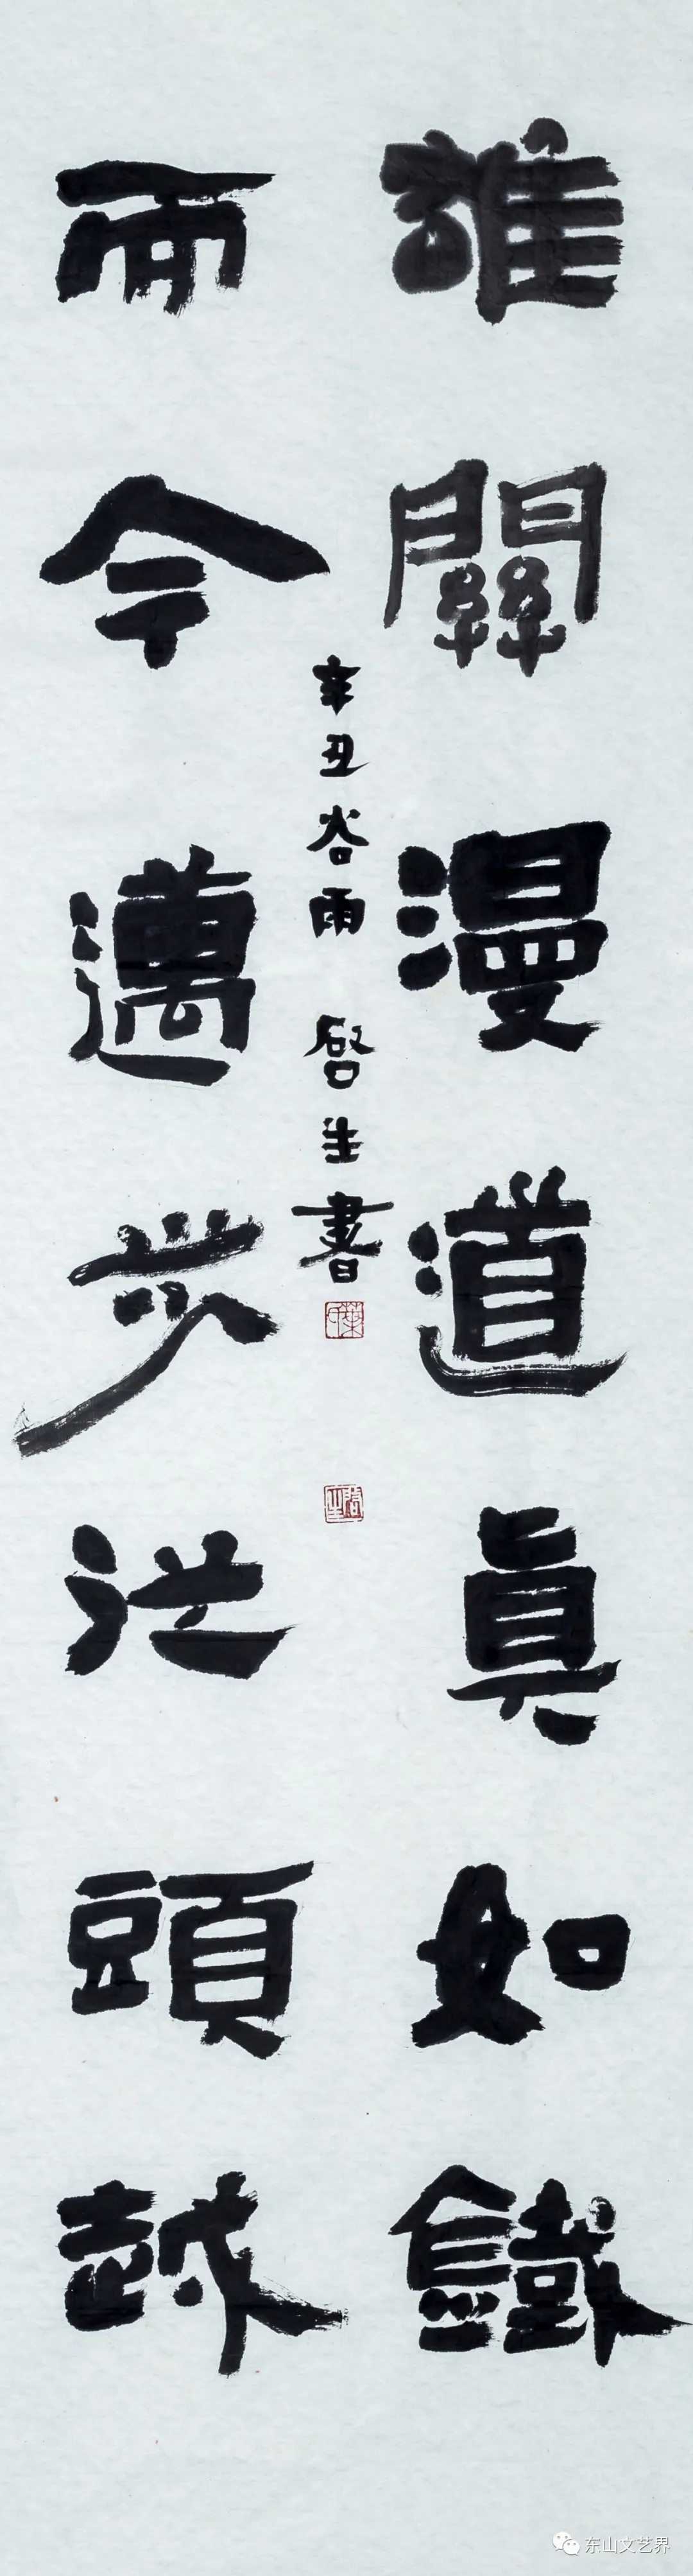 雄關漫道真如鐵
而今邁步從頭越
辛丑谷雨 啓生書
东山文艺界